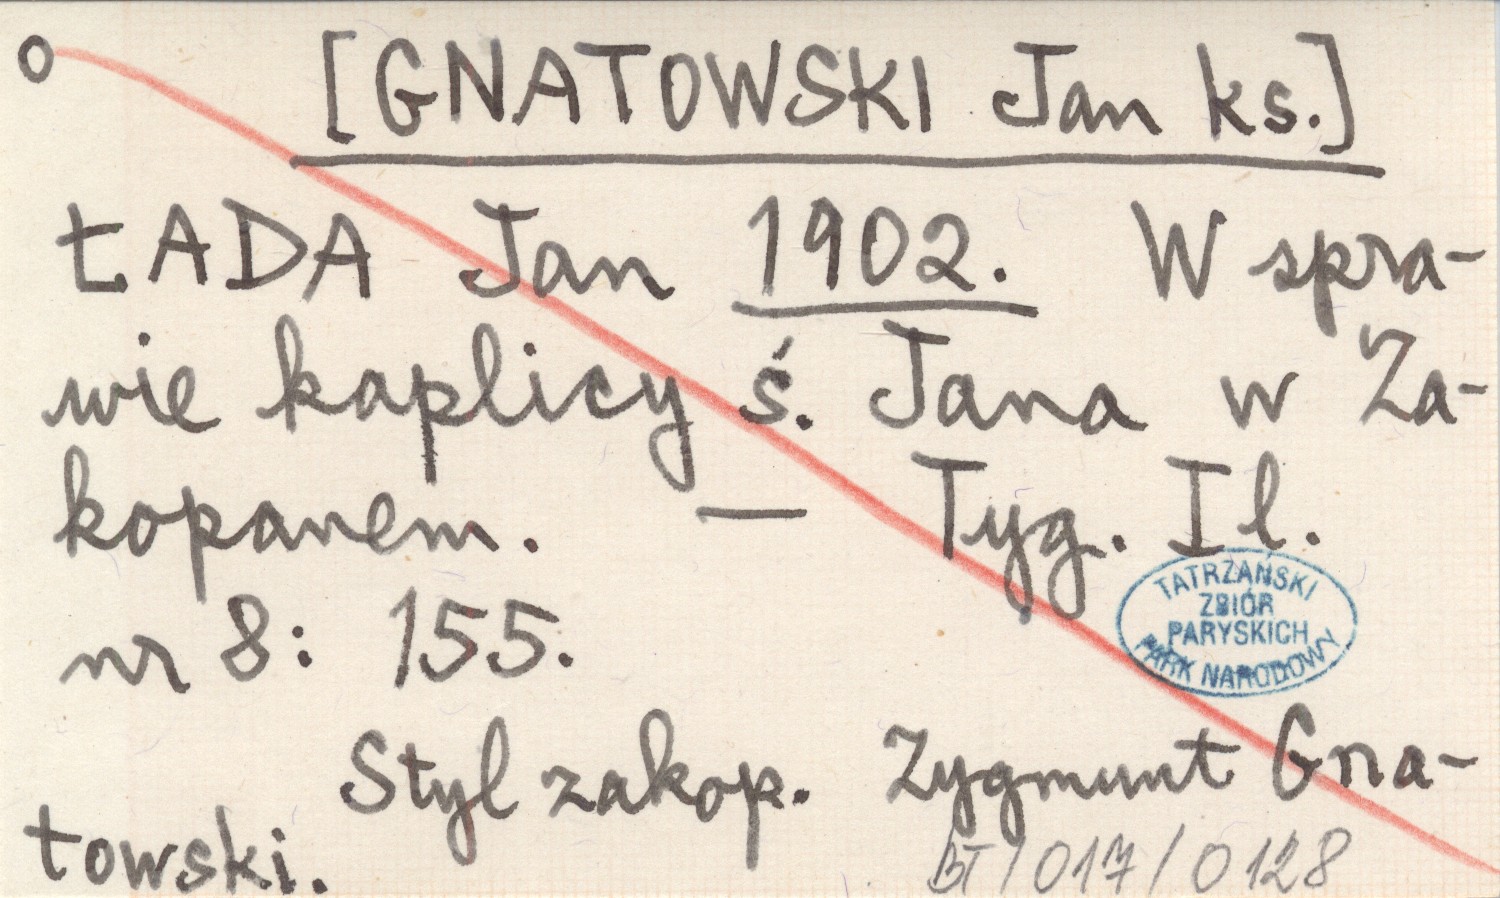 o [GNATOWSKI Jan ks.]
ŁADA Jan 1902. W spra-
wie kaplicy ś. Jana w Za-
kopanem. — Tyg. Il.
nr 8: 155.
TATRZAŃSKI
ZBIÓR
PARYSKICH
PARK NARODOWY
Styl zakop. Zygmunt Gna-
towski.
BT/017/0128